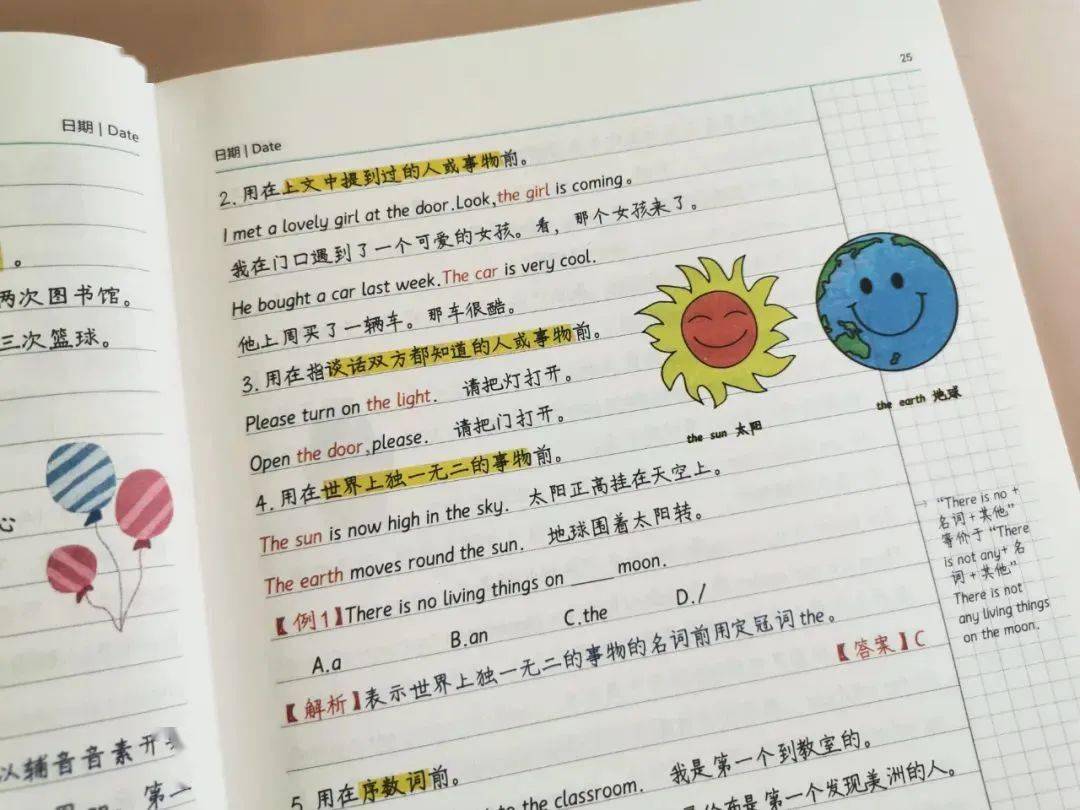 日期 | Date
。
两次图书馆。
三次篮球。
心
以辅音音素开
第一
25
日期 | Date
2. 用在上文中提到过的人或事物前。
I met a lovely girl at the door.Look,the girl is coming。
我在门口遇到了一个可爱的女孩。看，那个女孩来了。
He bought a car last week.The car is very cool.
他上周买了一辆车。那车很酷。
3. 用在指谈话双方都知道的人或事物前。
Please turn on the light. 请把灯打开。
Open the door,please. 请把门打开。
4. 用在世界上独一无二的事物前。
The sun is now high in the sky. 太阳正高挂在天空上。
The earth moves round the sun. 地球围着太阳转。
【例1】There is no living things on ____ moon.
A.a B.an C.the D./
【解析】表示世界上独一无二的事物的名词前用定冠词the。
【答案】C
5. 用在序数词前。
to the classroom. 我是第一个到教室的。
是第一个发现美洲的人。
the sun 太阳
the earth 地球
“There is no +
名词+其他”
等价于“There
is not any+名
词+其他”
There is not
any living things
on the moon.